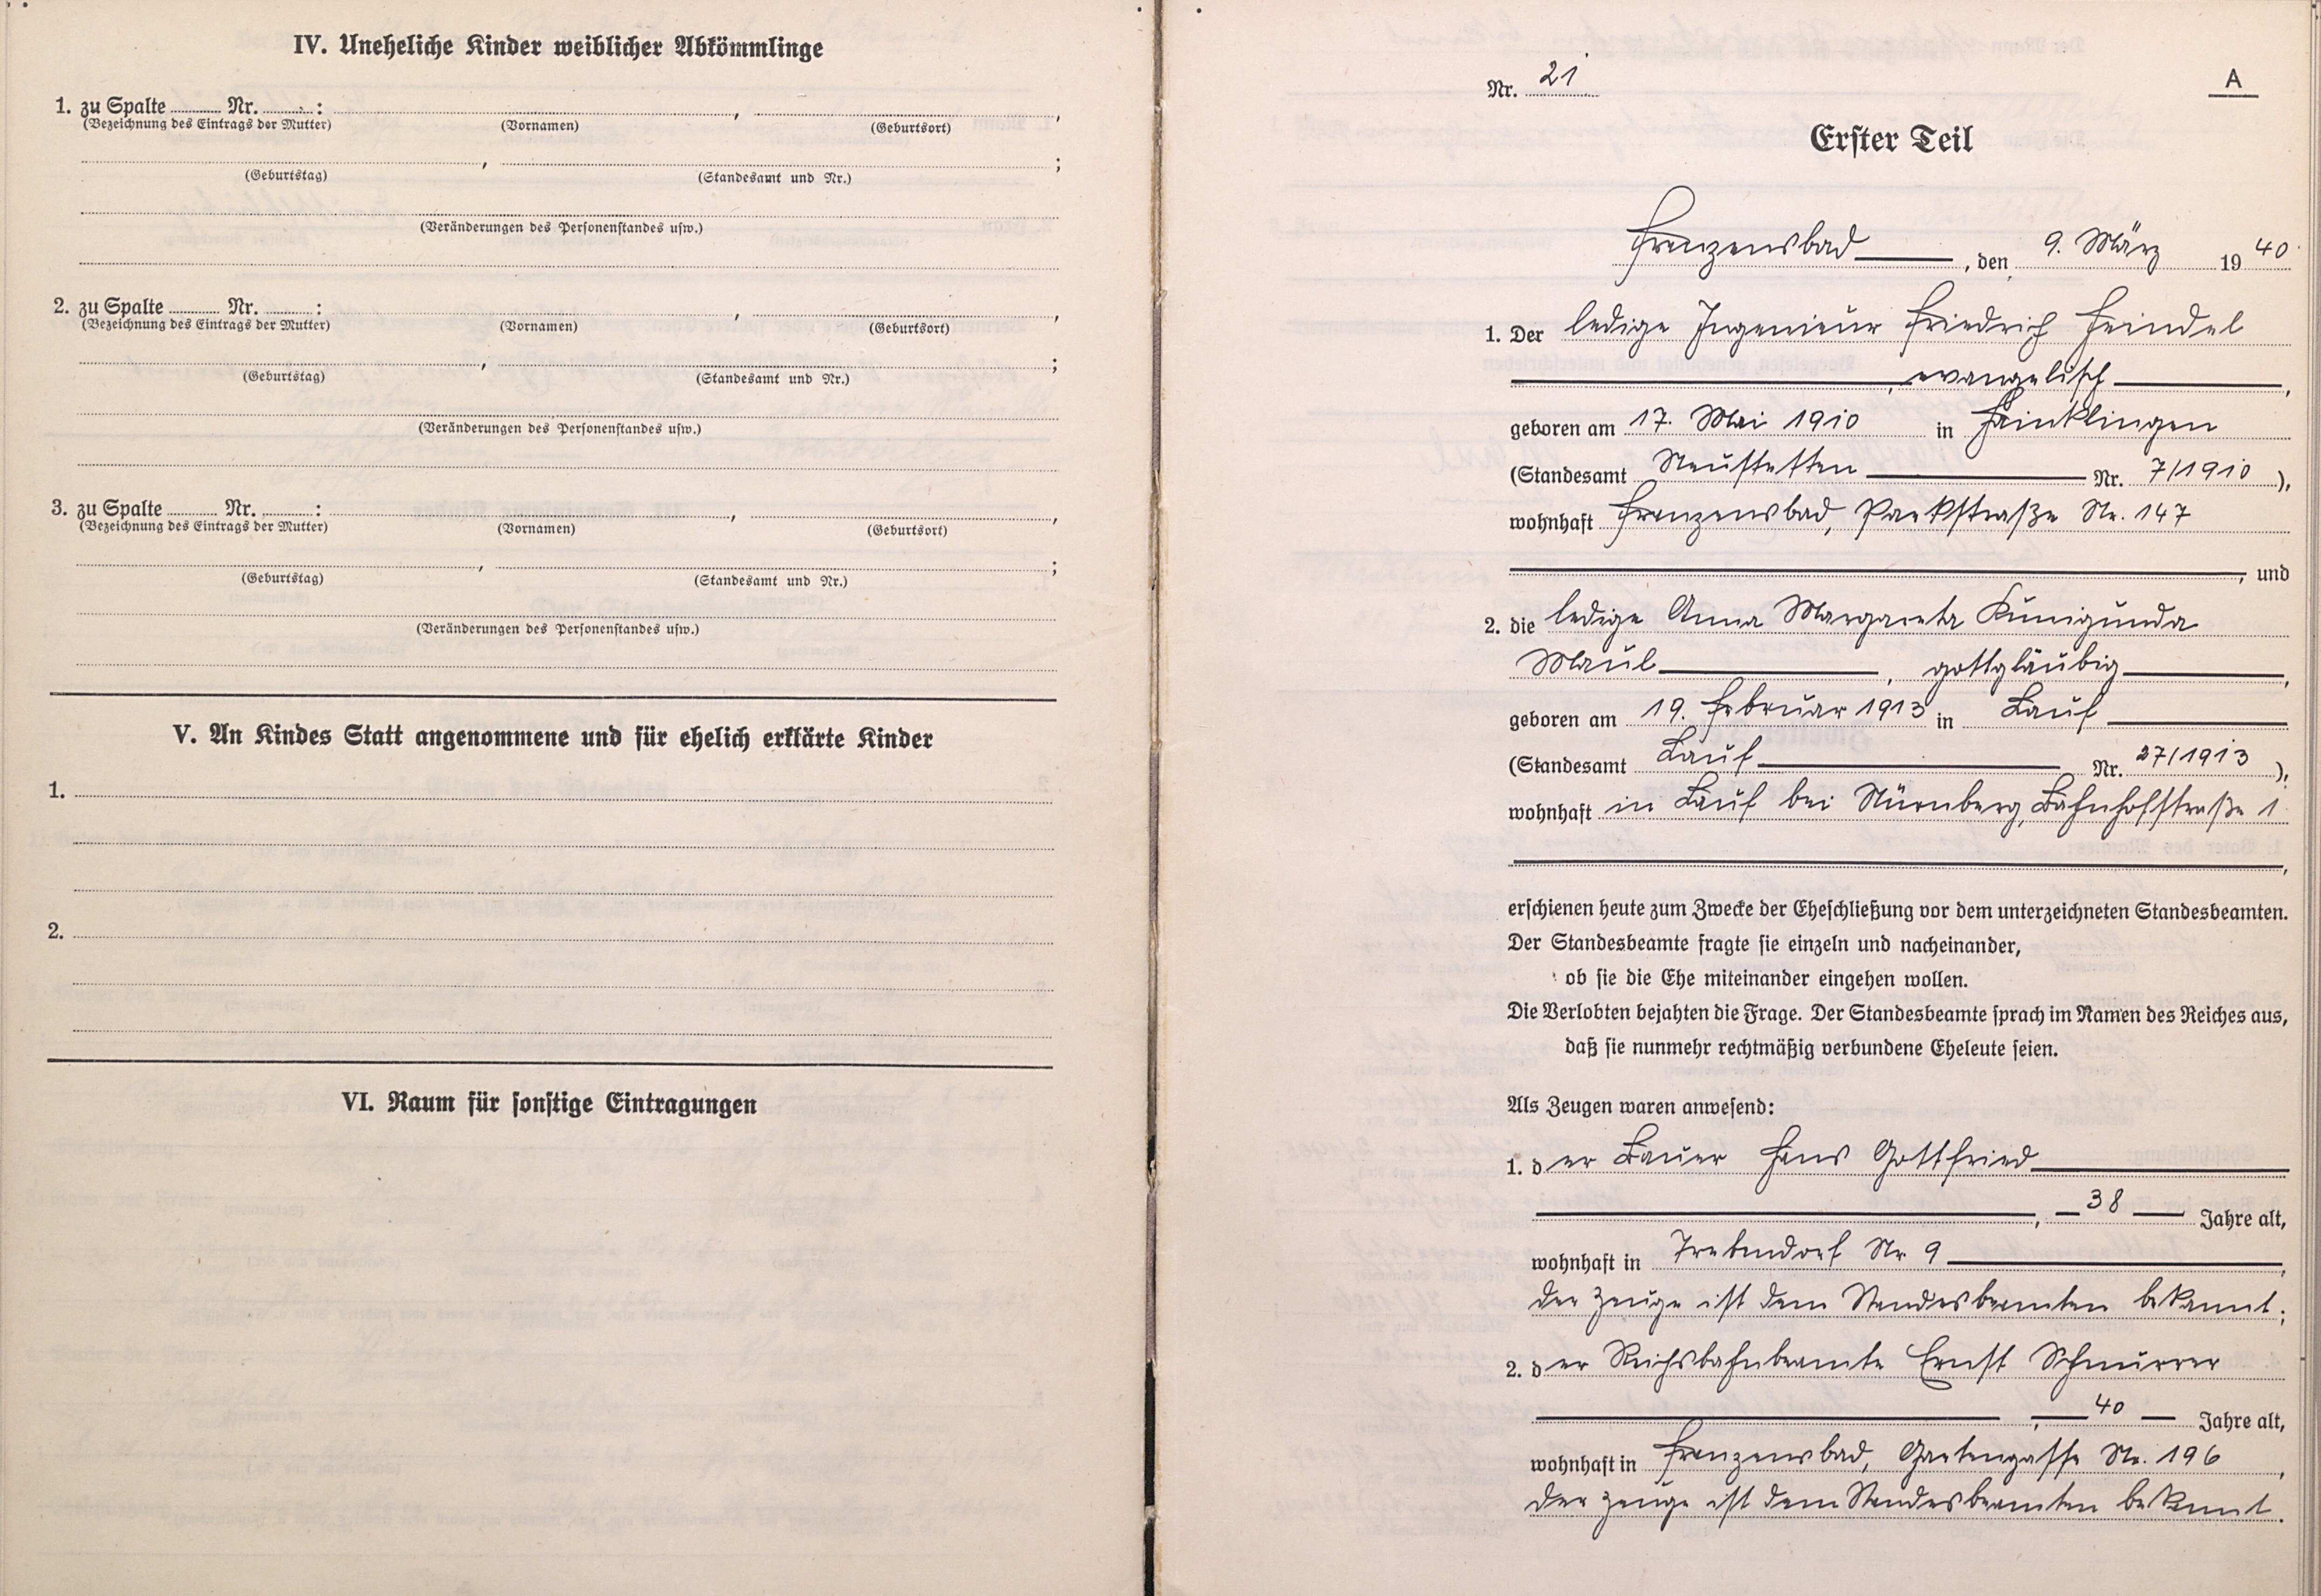 IV. Uneheliche Kinder weiblicher Abkömmlinge
1. zu Spalte ........ Nr. ........: , ,
(Bezeichnung des Eintrags der Mutter) (Vornamen) (Geburtsort)
, ;
(Geburtstag) (Standesamt und Nr.)
(Veränderungen des Personenstandes usw.)
2. zu Spalte ........ Nr. ........: , ,
(Bezeichnung des Eintrags der Mutter) (Vornamen) (Geburtsort)
, ;
(Geburtstag) (Standesamt und Nr.)
(Veränderungen des Personenstandes usw.)
3. zu Spalte ........ Nr. ........: , ,
(Bezeichnung des Eintrags der Mutter) (Vornamen) (Geburtsort)
, ;
(Geburtstag) (Standesamt und Nr.)
(Veränderungen des Personenstandes usw.)
V. An Kindes Statt angenommene und für ehelich erklärte Kinder
1.
2.
VI. Raum für sonstige Eintragungen
Nr. 21
A
Erster Teil
Franzensbad, den 9. März 1940
1. Der ledige Ingenieur Friedrich Heindel
, evangelisch,
geboren am 17. Mai 1910 in Hainklingen
(Standesamt Neustetten Nr. 7/1910),
wohnhaft Franzensbad, Parkstraße Nr. 147
, und
2. die ledige Anna Margareta Kunigunda
Maul, gottgläubig,
geboren am 19. Februar 1913 in Lauf
(Standesamt Lauf Nr. 27/1913),
wohnhaft in Lauf bei Nürnberg, Bahnhofstraße 1
,
erschienen heute zum Zwecke der Eheschließung vor dem unterzeichneten Standesbeamten.
Der Standesbeamte fragte sie einzeln und nacheinander,
ob sie die Ehe miteinander eingehen wollen.
Die Verlobten bejahten die Frage. Der Standesbeamte sprach im Namen des Reiches aus,
daß sie nunmehr rechtmäßig verbundene Eheleute seien.
Als Zeugen waren anwesend:
1. der Bauer Hans Gottfried
, 38 Jahre alt,
wohnhaft in Trebendorf Nr 9,
der Zeuge ist dem Standesbeamten bekannt;
2. der Reichsbahnbeamte Ernst Schnurrer
, 40 Jahre alt,
wohnhaft in Franzensbad, Gartengasse Nr. 196,
der Zeuge ist dem Standesbeamten bekannt.